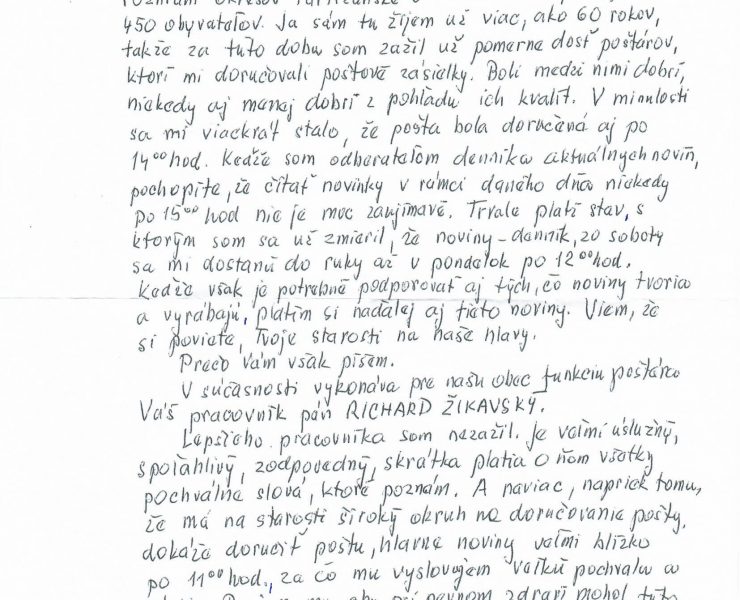 450 obyvateľov. Ja sám tu žijem už viac, ako 60 rokov,
takže za túto dobu som zažil už pomerne dosť poštárov,
ktorí mi doručovali poštové zásielky. Boli medzi nimi dobrí,
niekedy aj menej dobrí z pohľadu ich kvalít. V minulosti
sa mi viackrát stalo, že pošta bola doručená aj po
14⁰⁰ hod. Kedže som odberateľom denníka aktuálnych novín,
pochopíte, že čítať novinky v rámci daného dňa niekedy
po 15⁰⁰ hod nie je moc zaujímavé. Trvale platí stav, s
ktorým som sa už zmieril, že noviny - denník, zo soboty
sa mi dostanú do ruky až v pondelok po 12⁰⁰ hod.
Kedže však je potrebné podporovať aj tých, čo noviny tvoria
a vyrábajú, platím si naďalej aj tieto noviny. Viem, že
si poviete, Tvoje starosti na naše hlavy.
Prečo Vám však píšem.
V súčasnosti vykonáva pre našu obec funkciu poštára
Váš pracovník pán RICHARD ŽIKAVSKÝ.
Lepšieho pracovníka som nezažil. Je veľmi úslužný,
spoľahlivý, zodpovedný, skrátka platia o ňom všetky
pochvalné slová, ktoré poznám. A naviac, napriek tomu,
že má na starosti široký okruh na doručovanie pošty,
dokáže doručiť poštu, hlavne noviny veľmi blízko
po 11⁰⁰ hod., za čo mu vyslovujem veľkú pochvalu a